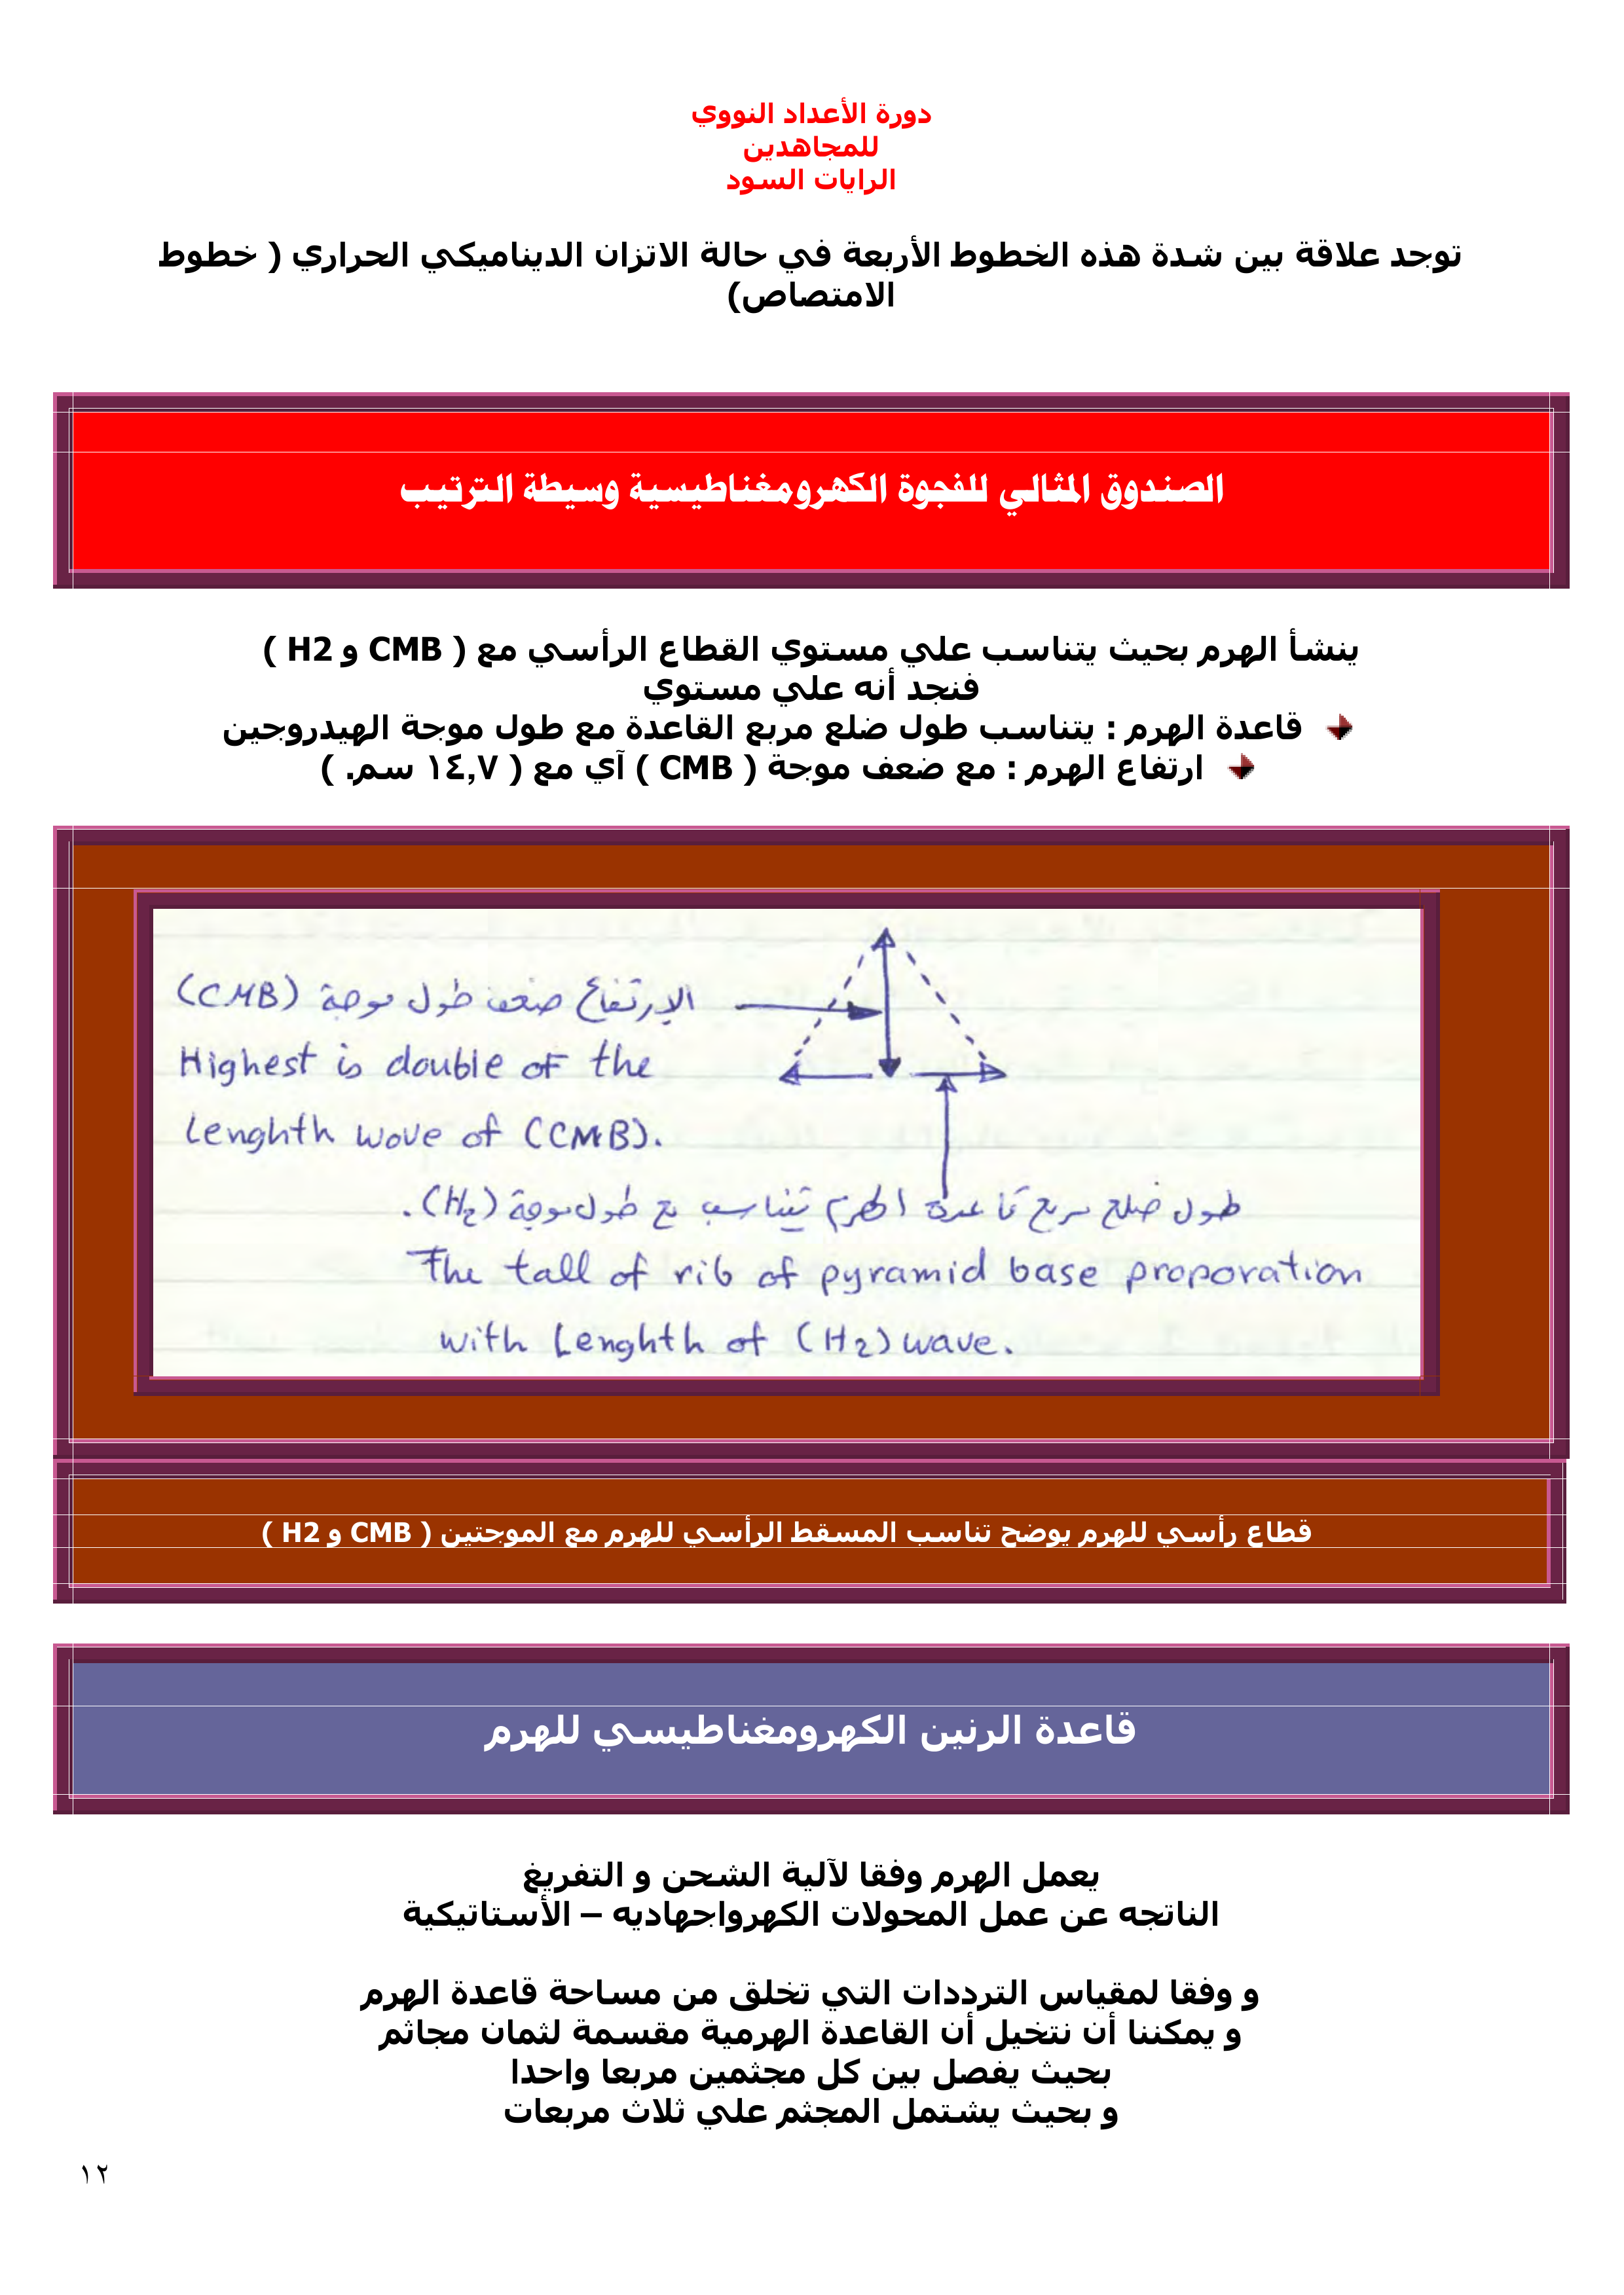 دورة الأعداد النووي
للمجاهدين
الرايات السود
توجد علاقة بين شدة هذه الخطوط الأربعة في حالة الاتزان الديناميكي الحراري ( خطوط
الامتصاص)
الصندوق المثالي للفجوة الكهرومغناطيسية وسيطة الترتيب
ينشأ الهرم بحيث يتناسب علي مستوي القطاع الرأسي مع ( CMB و H2 )
فنجد أنه علي مستوي
قاعدة الهرم : يتناسب طول ضلع مربع القاعدة مع طول موجة الهيدروجين
ارتفاع الهرم : مع ضعف موجة ( CMB ) آي مع ( ١٤,٧ سم. )
الارتفاع ضعف طول موجة (CMB)
Highest is double of the
Lenghth wove of (CMB).
طول ضلع مربع قاعدة الهرم يتناسب مع طول موجة (H2).
The tall of rib of pyramid base proporation
with Lenghth of (H2) wave.
قطاع رأسي للهرم يوضح تناسب المسقط الرأسي للهرم مع الموجتين ( CMB و H2 )
قاعدة الرنين الكهرومغناطيسي للهرم
يعمل الهرم وفقا لآلية الشحن و التفريغ
الناتجه عن عمل المحولات الكهرواجهاديه – الأستاتيكية
و وفقا لمقياس الترددات التي تخلق من مساحة قاعدة الهرم
و يمكننا أن نتخيل أن القاعدة الهرمية مقسمة لثمان مجاثم
بحيث يفصل بين كل مجثمين مربعا واحدا
و بحيث يشتمل المجثم علي ثلاث مربعات
١٢